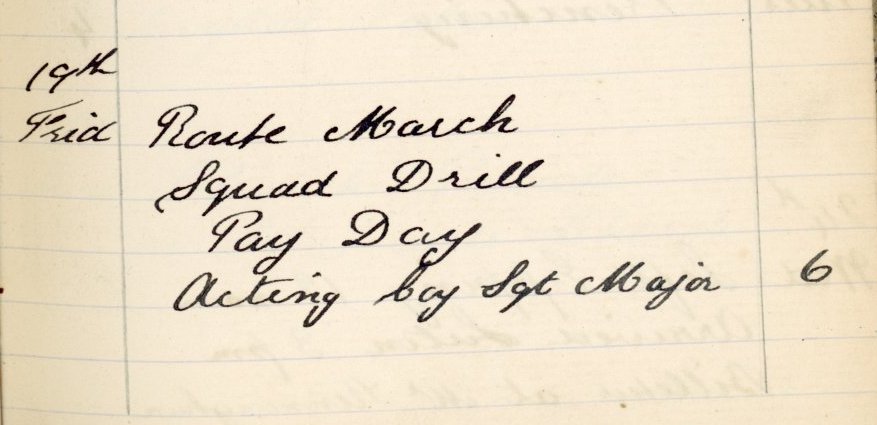 19th
Frid Route March
Squad Drill
Pay Day
Acting Coy Sgt Major 6